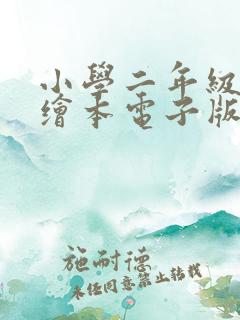 小學二年級
繪本電子版
施耐德
未经同意禁止转载